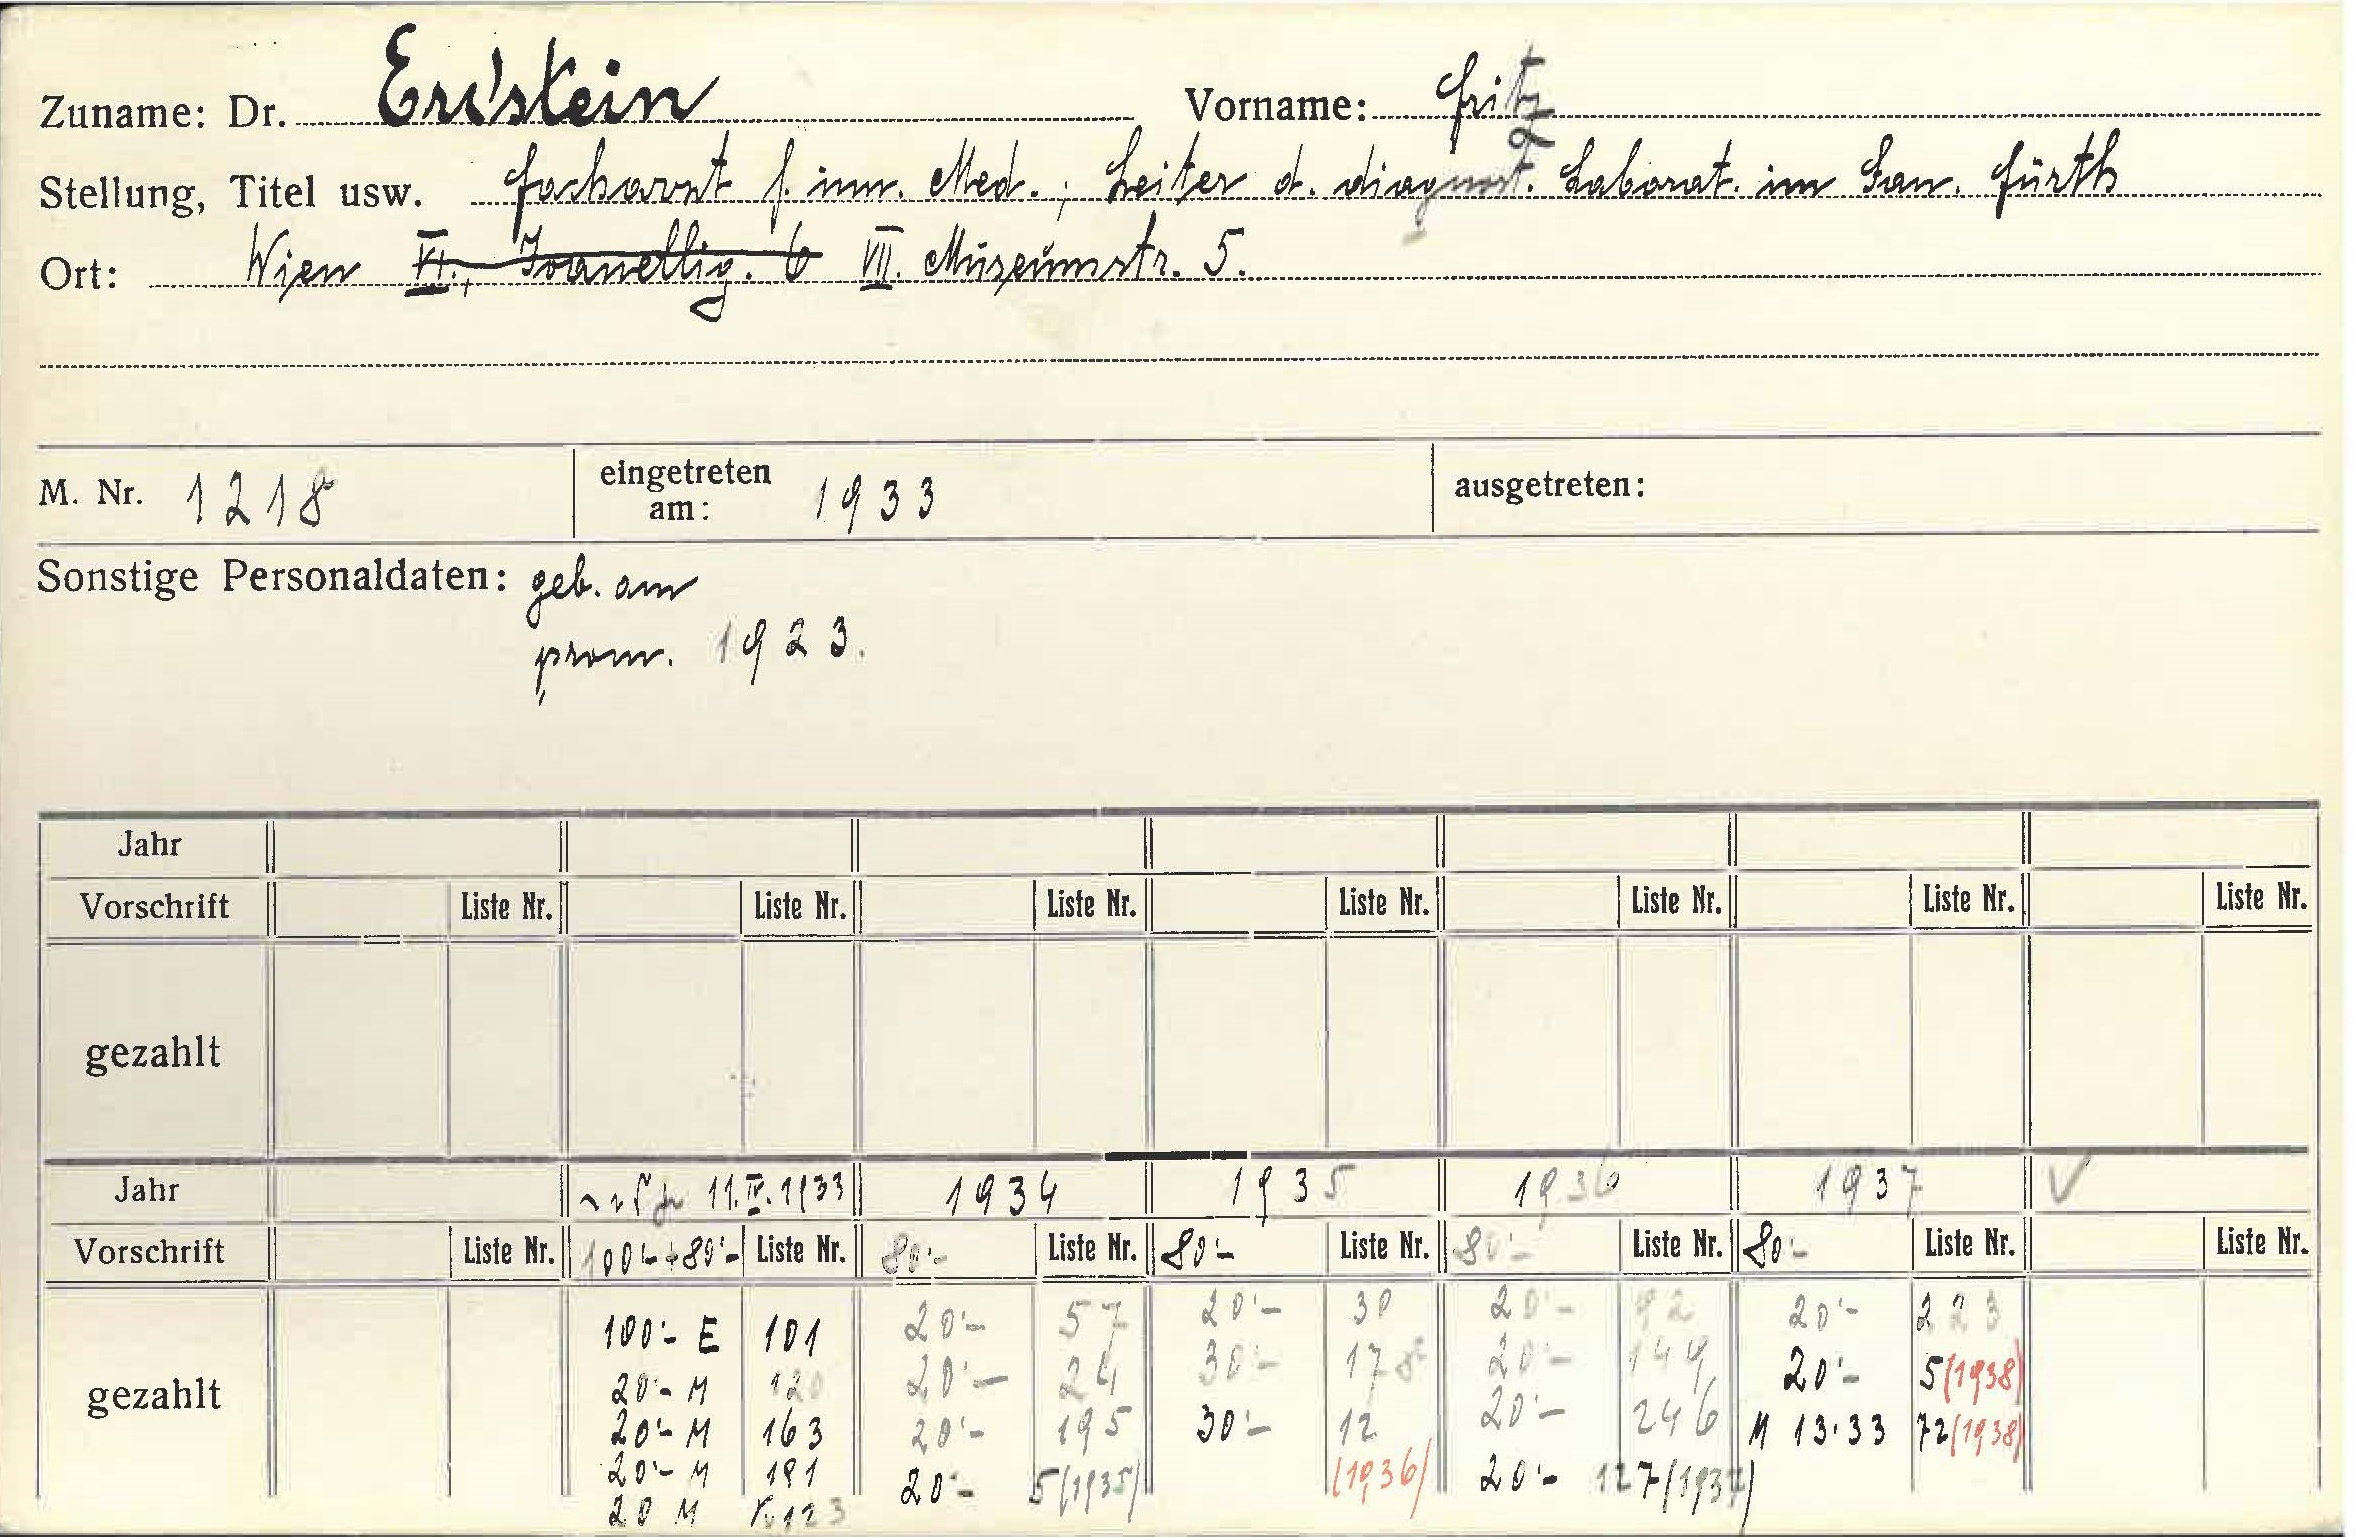 Zuname: Dr. Eristein Vorname: Fritz
Stellung, Titel usw. Facharzt f. inn. Med.; Leiter d. diagnost. Laborat. im San. Fürth
Ort: Wien VI., Ivanellig. 6 VII. Museumstr. 5.
M. Nr. 1218 eingetreten am: 1933 ausgetreten:
Sonstige Personaldaten: geb. am
prom. 1923.
Jahr
Vorschrift Liste Nr. Liste Nr. Liste Nr. Liste Nr. Liste Nr. Liste Nr. Liste Nr.
gezahlt
Jahr 11.IV.1933 1934 1935 1936 1937 √
Vorschrift Liste Nr. 100'- + 80'- Liste Nr. 80'- Liste Nr. 80'- Liste Nr. 80'- Liste Nr. 80'- Liste Nr. Liste Nr.
gezahlt
100'- E 101 20'- 57 20'- 30 20'- 92 20'- 223
20'- M 120 20'- 24 30'- 178 20'- 149 20'- 5 (1938)
20'- M 163 20'- 195 30'- 12 (1936) 20'- 246 M 13·33 72 (1938)
20'- M 191 20'- 5 (1935) 20'- 127/(1937)
20 M 123